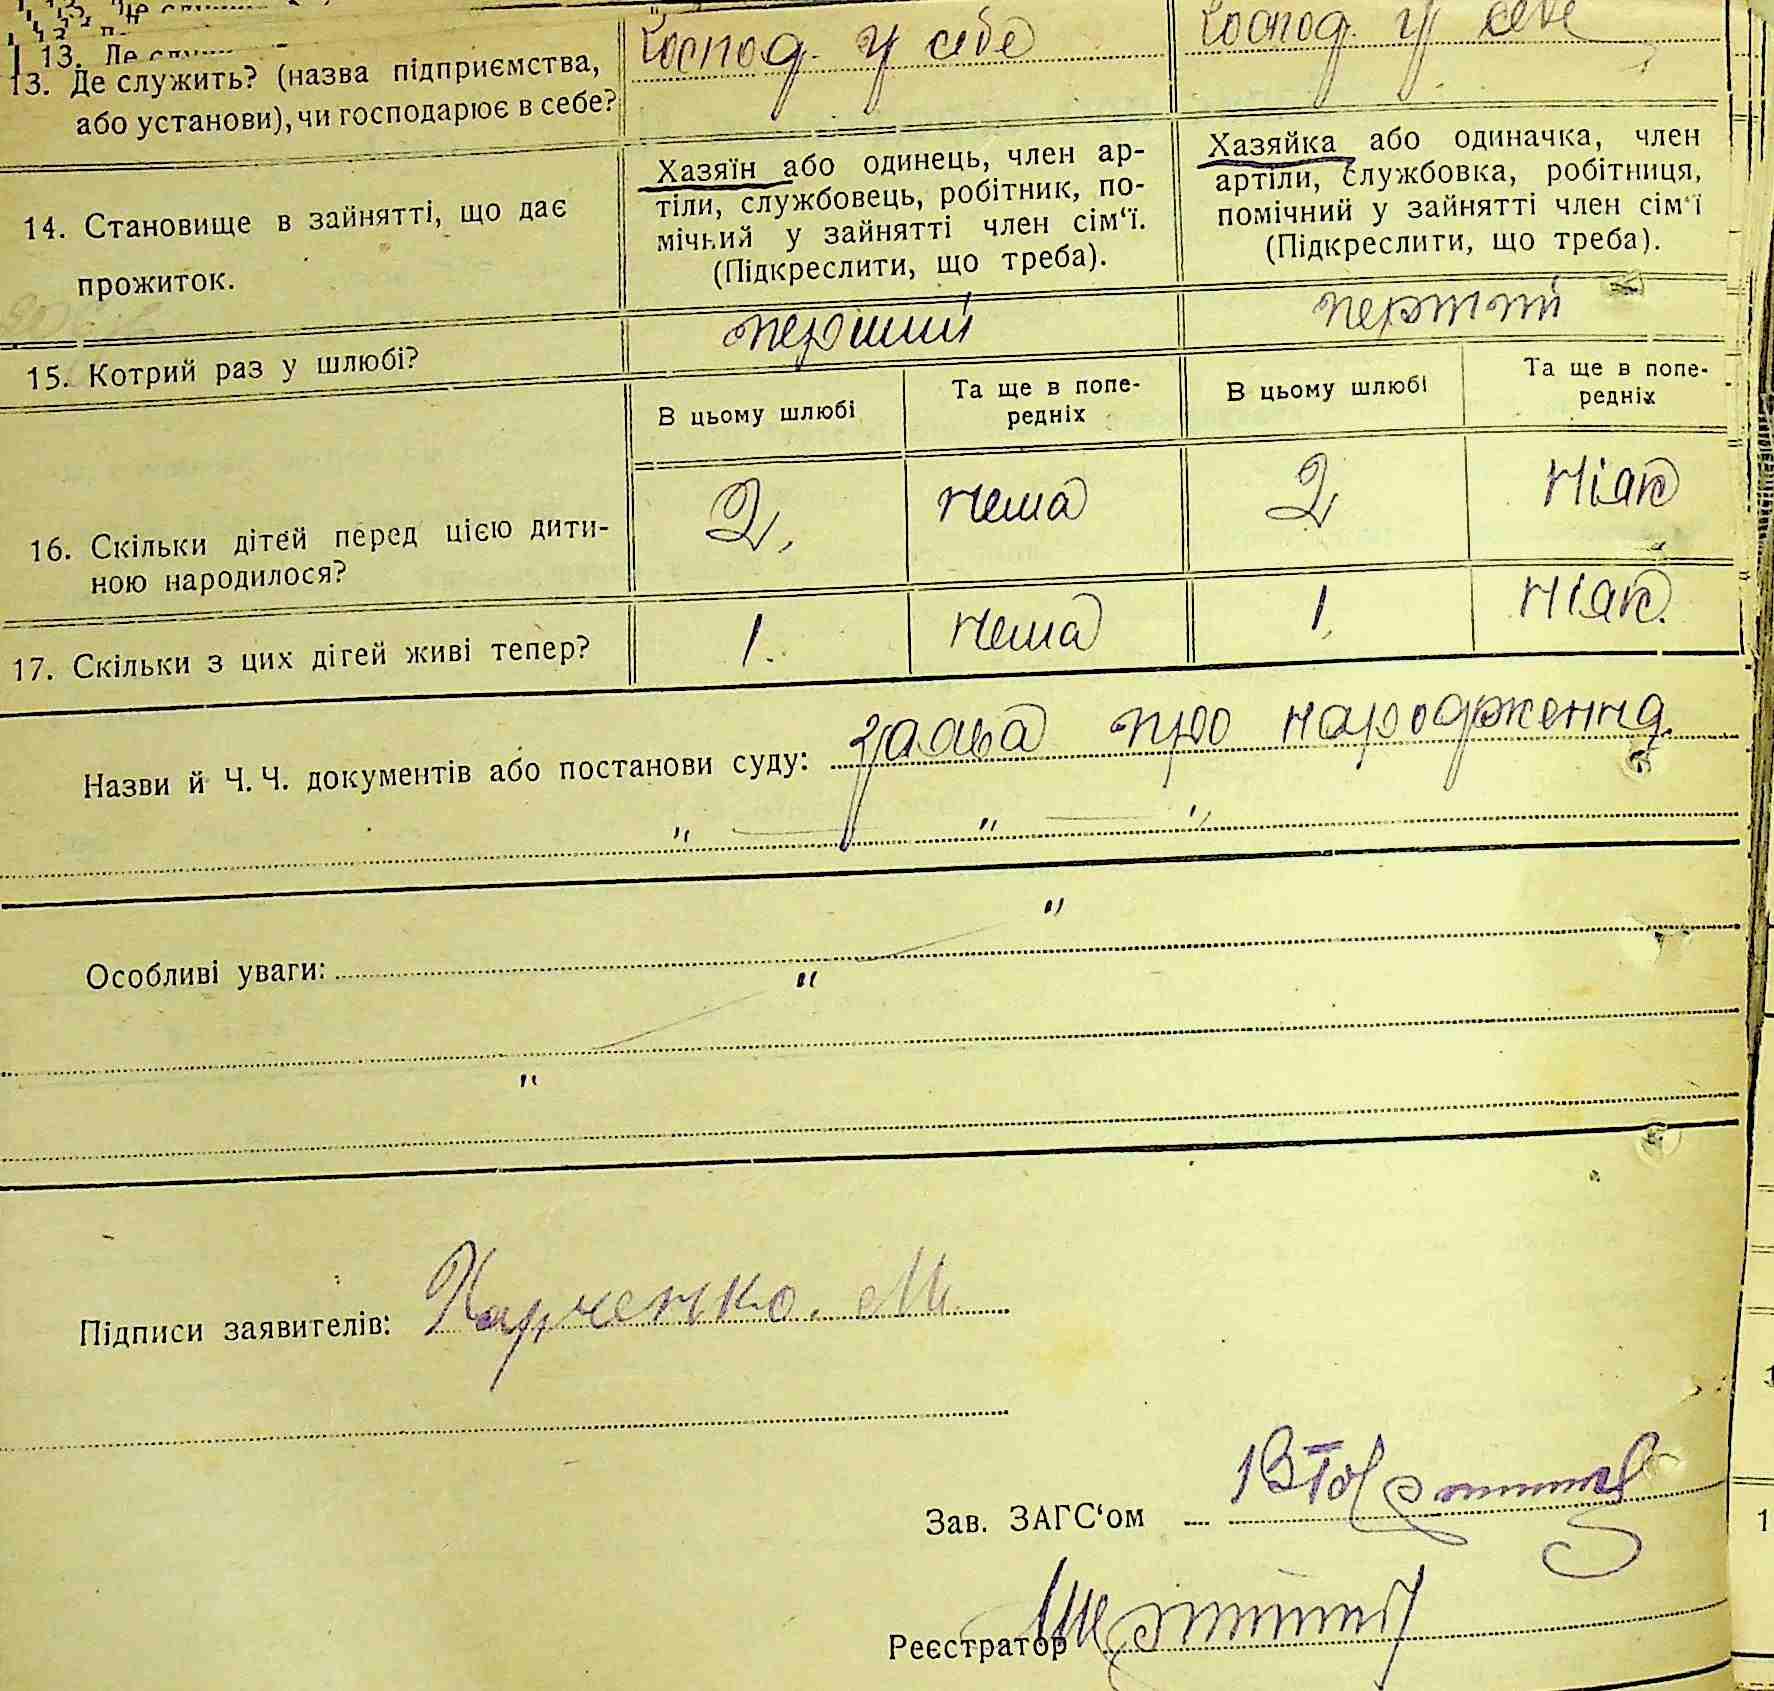 13. Де служить? (назва підприємства, господ. у себе господ. у себе
або установи), чи господарює в себе?
14. Становище в зайнятті, що дає
прожиток.
Хазяїн або одинець, член ар-
тіли, службовець, робітник, по-
мічний у зайнятті член сім'ї.
(Підкреслити, що треба).
Хазяйка або одиначка, член
артіли, службовка, робітниця,
помічний у зайнятті член сім'ї
(Підкреслити, що треба).
15. Котрий раз у шлюбі? перший перший
В цьому шлюбі
Та ще в попе-
редніх
В цьому шлюбі
Та ще в попе-
редніх
16. Скільки дітей перед цією дити-
ною народилося?
2, нема 2 ніяк
17. Скільки з цих дігей живі тепер? 1. нема 1, ніяк.
Назви й Ч. Ч. документів або постанови суду: заява про народження
" " "
Особливі уваги: "
"
"
Підписи заявителів: Харченко. М.
Зав. ЗАГС'ом
Реєстратор